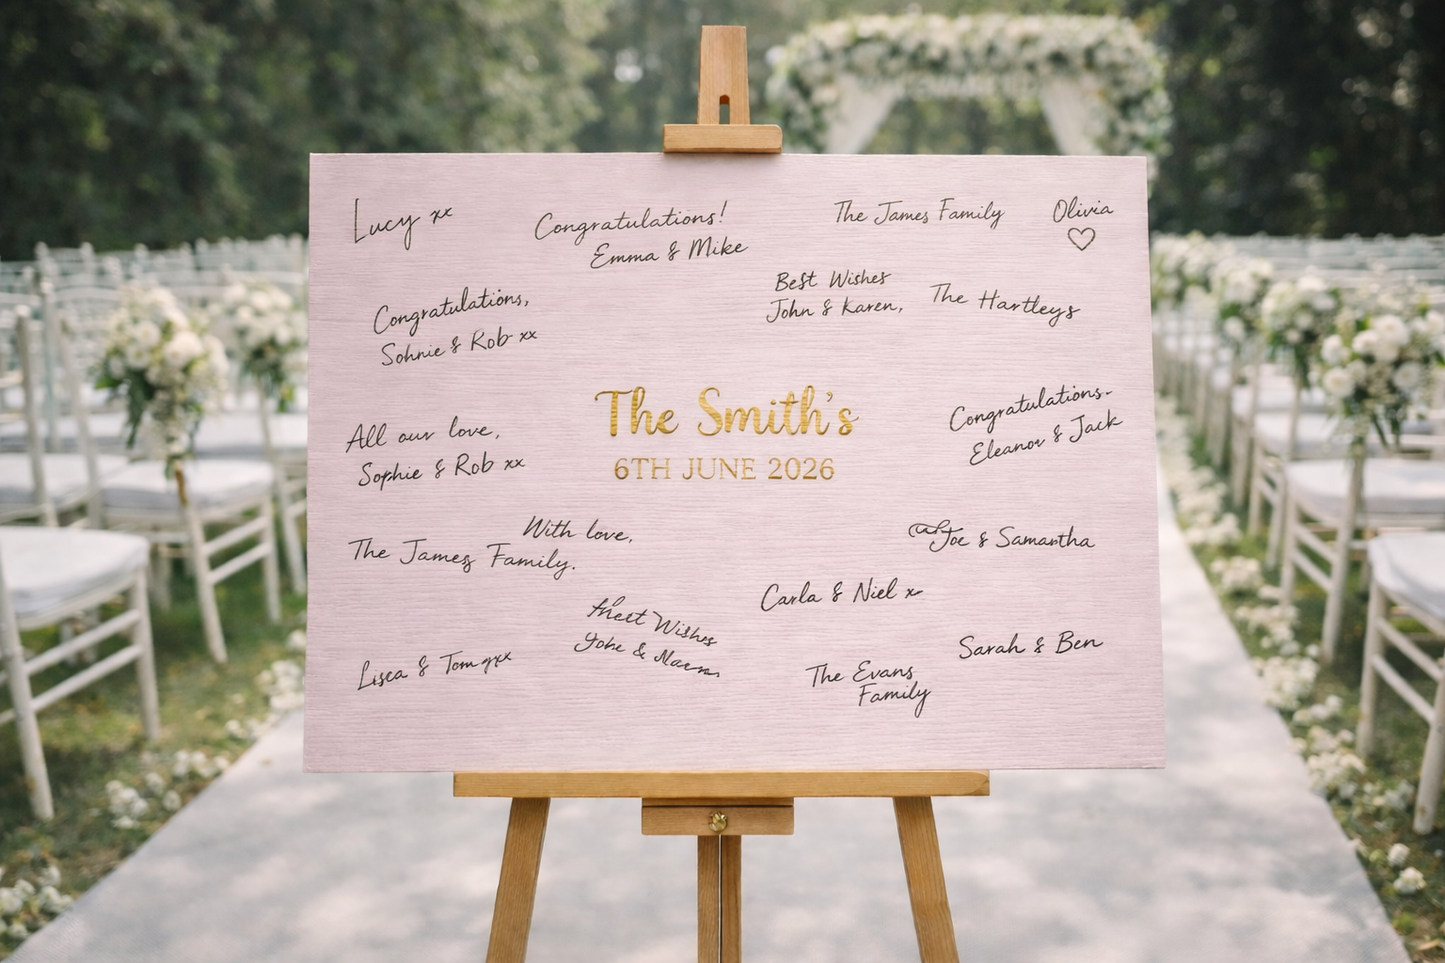 Lucy xx
Congratulations!
Emma & Mike
The James Family
Olivia
Best Wishes
John & Karen,
The Hartleys
Congratulations,
Sohnie & Rob xx
The Smith's
6TH JUNE 2026
Congratulations-
Eleanor & Jack
All our love,
Sophie & Rob xx
With love,
The James Family.
Joe & Samantha
Carla & Niel x
Wishes
&
Sarah & Ben
Lisca & Tom
The Evans
Family